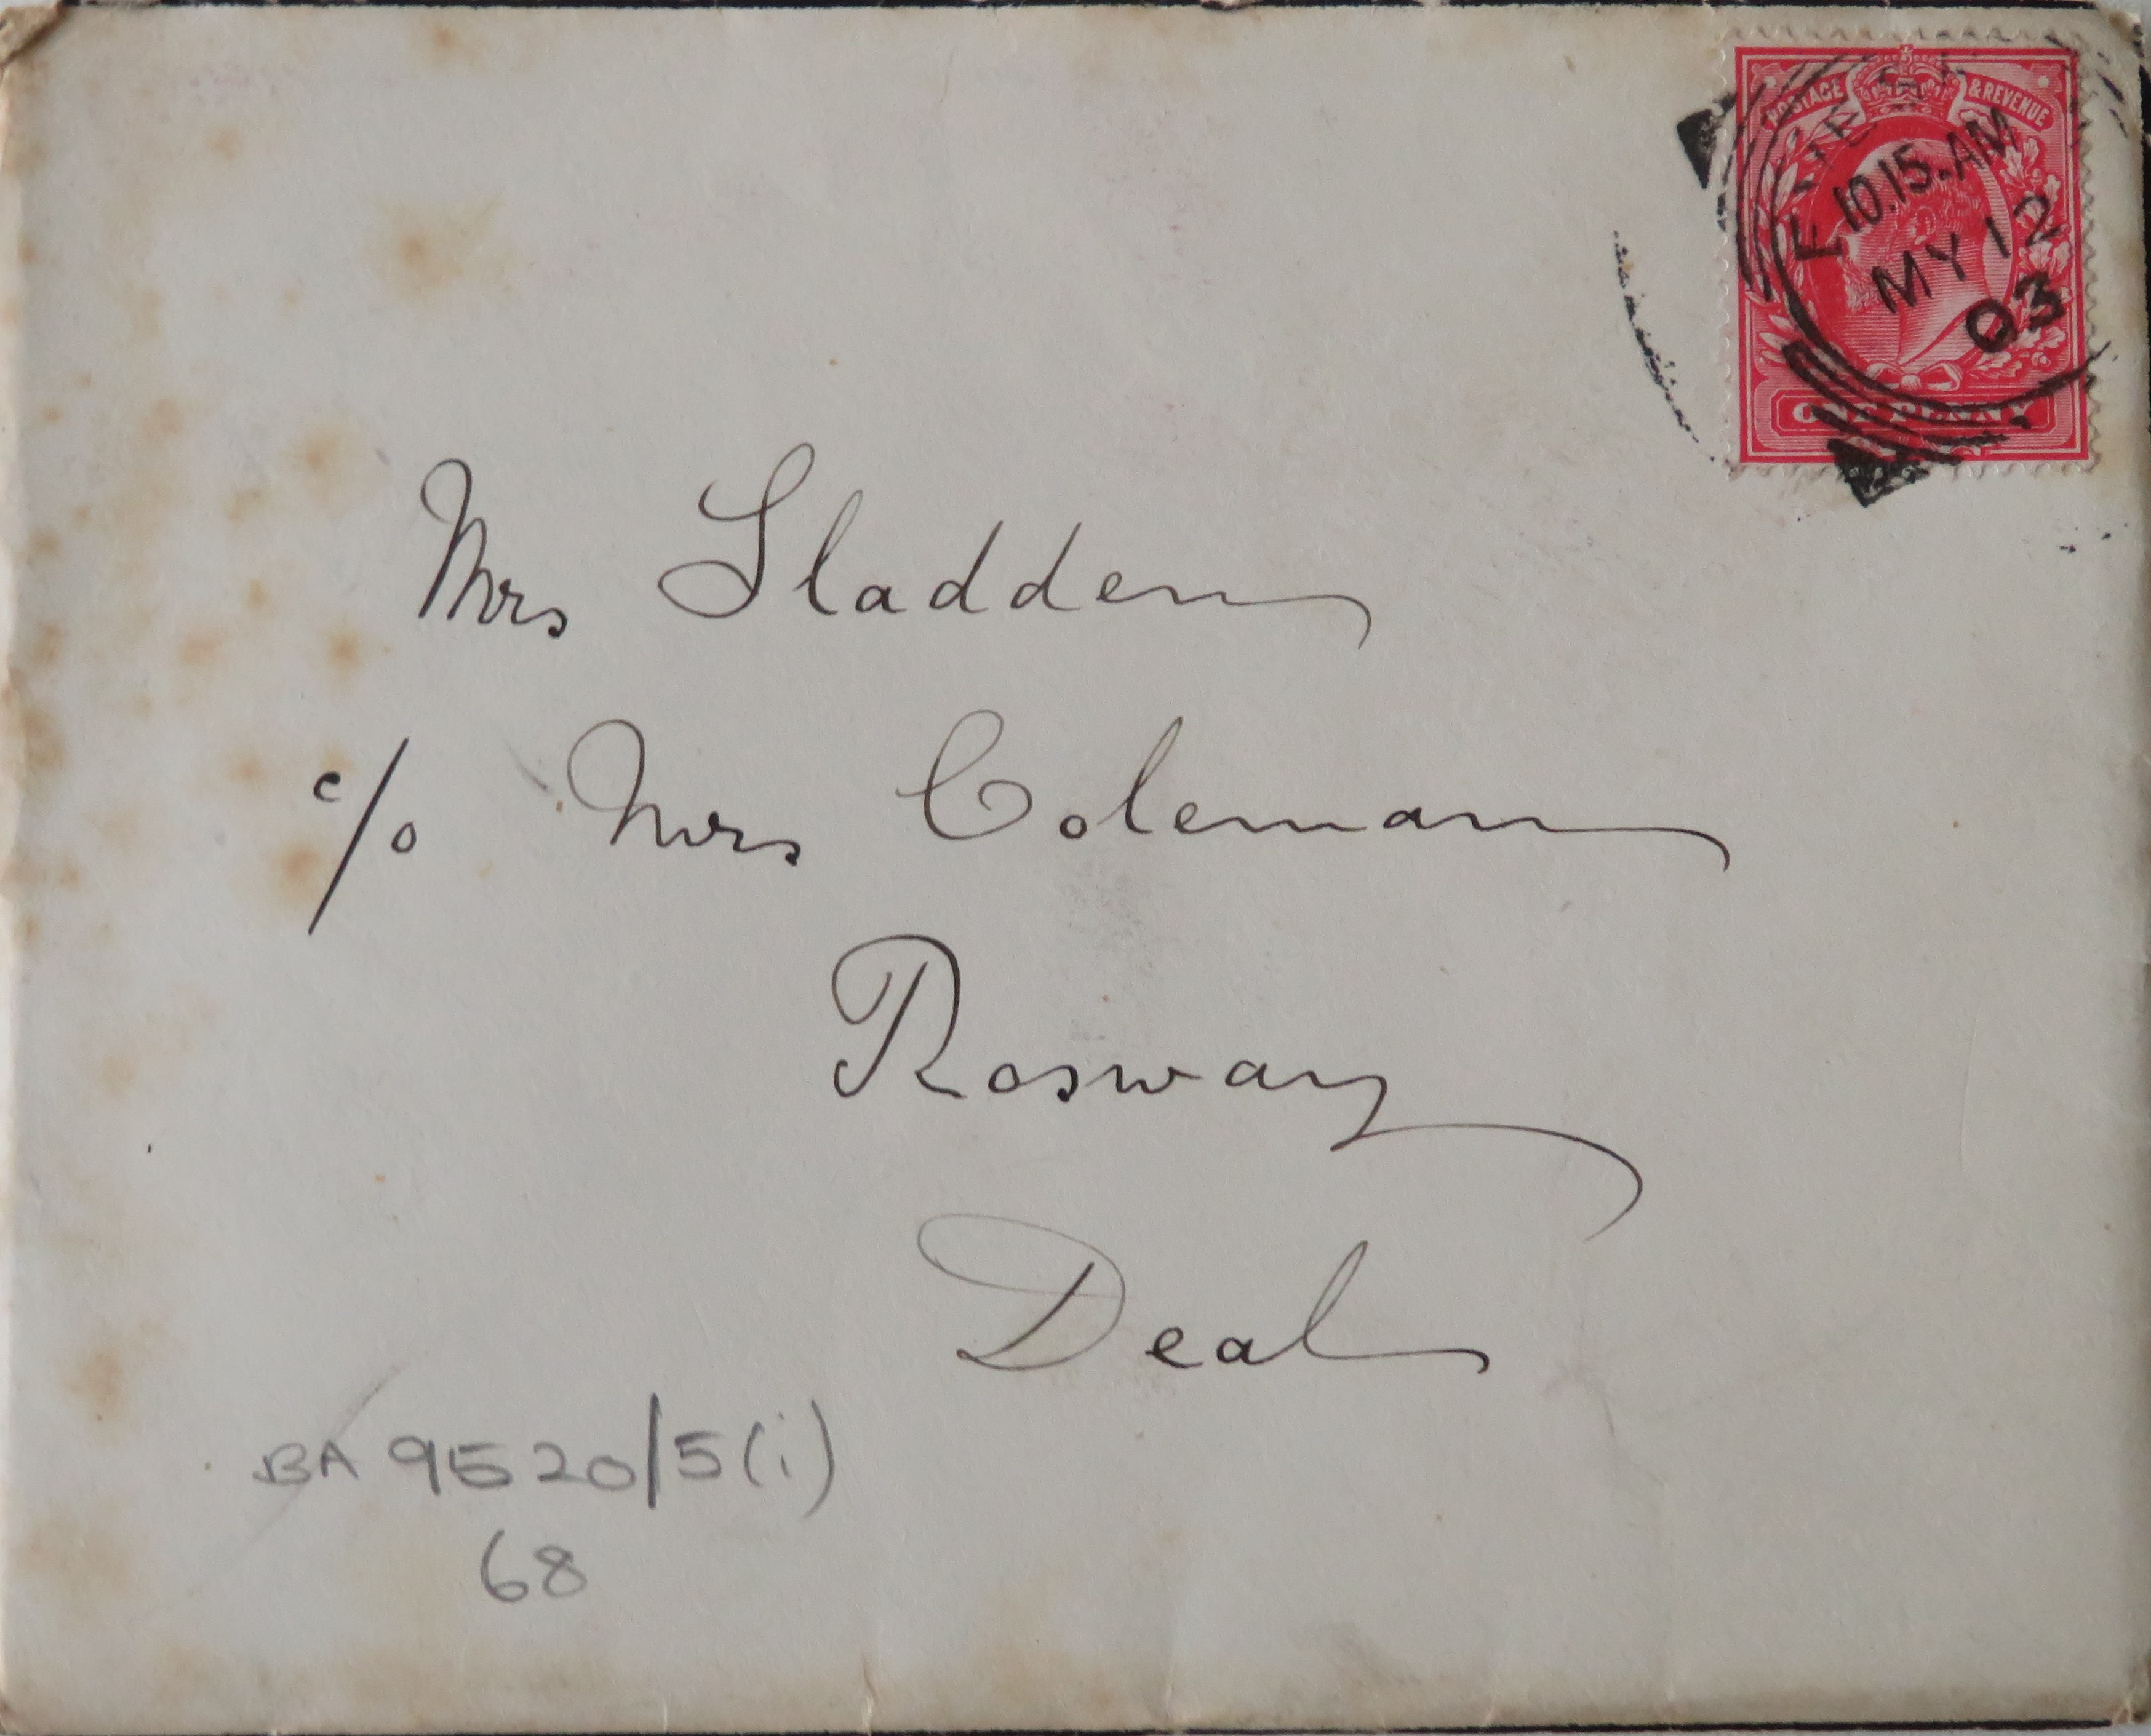 POSTAGE & REVENUE
10.15.AM
MY 12
03
ONE PENNY
Mrs Sladden
c/o Mrs Coleman
Rosway
Deal
BA 9520/5(i)
68